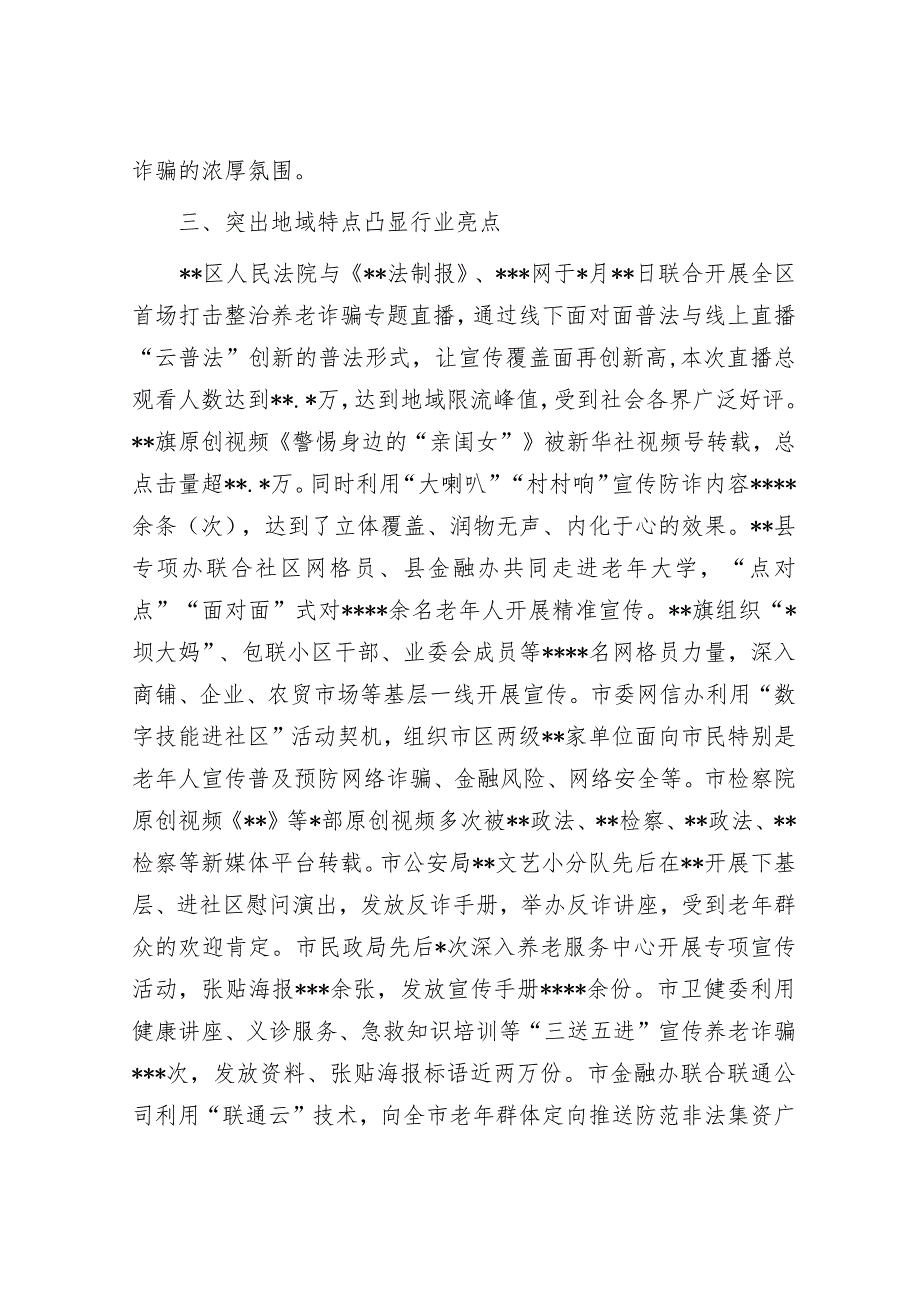 诈骗的浓厚氛围。
三、突出地域特点凸显行业亮点
**区人民法院与《**法制报》、***网于*月**日联合开展全区
首场打击整治养老诈骗专题直播，通过线下面对面普法与线上直播
“云普法”创新的普法形式，让宣传覆盖面再创新高，本次直播总
观看人数达到**.*万，达到地域限流峰值，受到社会各界广泛好评。
**旗原创视频《警惕身边的“亲闺女”》被新华社视频号转载，总
点击量超**.*万。同时利用“大喇叭”“村村响”宣传防诈内容****
余条（次），达到了立体覆盖、润物无声、内化于心的效果。**县
专项办联合社区网格员、县金融办共同走进老年大学，“点对
点”“面对面”式对****余名老年人开展精准宣传。**旗组织“*
坝大妈”、包联小区干部、业委会成员等****名网格员力量，深入
商铺、企业、农贸市场等基层一线开展宣传。市委网信办利用“数
字技能进社区”活动契机，组织市区两级**家单位面向市民特别是
老年人宣传普及预防网络诈骗、金融风险、网络安全等。市检察院
原创视频《**》等*部原创视频多次被**政法、**检察、**政法、**
检察等新媒体平台转载。市公安局**文艺小分队先后在**开展下基
层、进社区慰问演出，发放反诈手册，举办反诈讲座，受到老年群
众的欢迎肯定。市民政局先后*次深入养老服务中心开展专项宣传
活动，张贴海报***余张，发放宣传手册****余份。市卫健委利用
健康讲座、义诊服务、急救知识培训等“三送五进”宣传养老诈骗
***次，发放资料、张贴海报标语近两万份。市金融办联合联通公
司利用“联通云”技术，向全市老年群体定向推送防范非法集资广